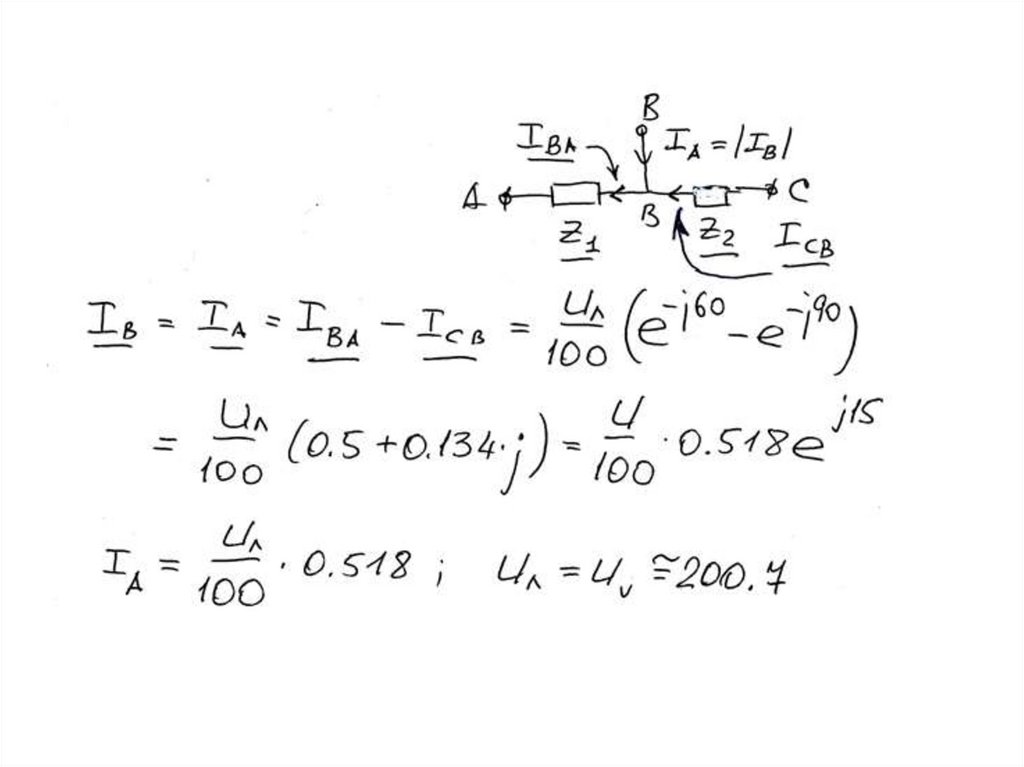 B
I_BA I_A = |I_B|
A B C
Z_1 Z_2 I_CB
I_B = I_A = I_BA − I_CB = U_л/100 (e^-j60 − e^-j90)
= U_л/100 (0.5 + 0.134·j) = U/100 · 0.518 e^j15
I_A = U_л/100 · 0.518 ; U_л = U_v ≅ 200.7